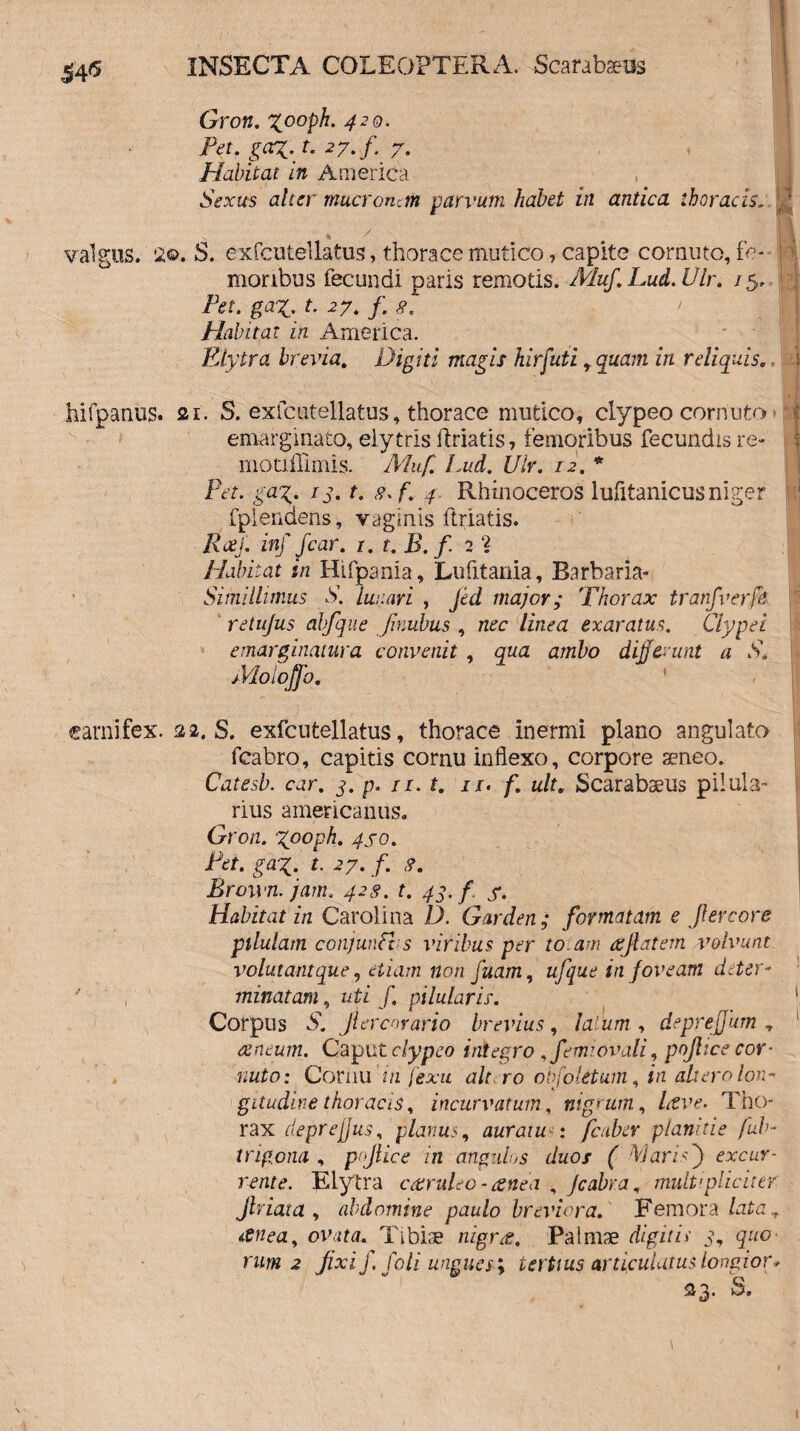 546 INSECTA COLEOPTERA. Scarabæus
Gron. zooph. 420.
Pet. gaz. t. 27. f. 7.
Habitat in America
Sexus alter mucronem parvum habet in antica thoracis.
valgus. 20. S. exſcutellatus, thorace mutico, capite cornuto, fe-
moribus ſecundi paris remotis. Muſ. Lud. Ulr. 15.
Pet. gaz. t. 27. f. 8.
Habitat in America.
Elytra brevia. Digiti magis hirſuti, quam in reliquis.
hiſpanus. 21. S. exſcutellatus, thorace mutico, clypeo cornuto
emarginato, elytris ſtriatis, femoribus ſecundis re-
motiſſimis. Muſ. Lud. Ulr. 12. *
Pet. gaz. 13. t. 8. f. 4 Rhinoceros luſitanicus niger
ſplendens, vaginis ſtriatis.
Raj. inſ ſcar. 1. t. B. f. 2 ?
Habitat in Hiſpania, Luſitania, Barbaria-
Simillimus S. lunari, ſed major; Thorax tranſverſe
retuſus abſque ſinubus, nec linea exaratus. Clypei
emarginatura convenit, qua ambo differunt a S.
Moloſſo.
carnifex. 22. S. exſcutellatus, thorace inermi plano angulato
ſcabro, capitis cornu inflexo, corpore æneo.
Catesb. car. 3. p. 11. t. 11. f. ult. Scarabæus pilula-
rius americanus.
Gron. zooph. 450.
Pet. gaz. t. 27. f. 8.
Brown. jam. 428. t. 43. f. 5.
Habitat in Carolina D. Garden; formatam e ſtercore
pilulam conjunctis viribus per totam æſtatem volvunt
volutantque, etiam non ſuam, uſque in foveam deter-
minatam, uti ſ. pilularis.
Corpus S. ſtercorario brevius, latum, depreſſum,
æneum. Caput clypeo integro, ſemiovali, poſtice cor-
nuto: Cornu in ſexu altero obſoletum, in altero lon-
gitudine thoracis, incurvatum, nigrum, læve. Tho-
rax depreſſus, planus, auratus: ſcaber planitie ſub-
trigona, poſtice in angulos duos (Maris) excur-
rente. Elytra cæruleo-ænea, ſcabra, multipliciter
ſtriata, abdomine paulo breviora. Femora lata,
ænea, ovata. Tibiæ nigræ. Palmæ digitis 3, quo
rum 2 fixi ſ. ſoli ungues; tertius articulatus longior.
23. S.